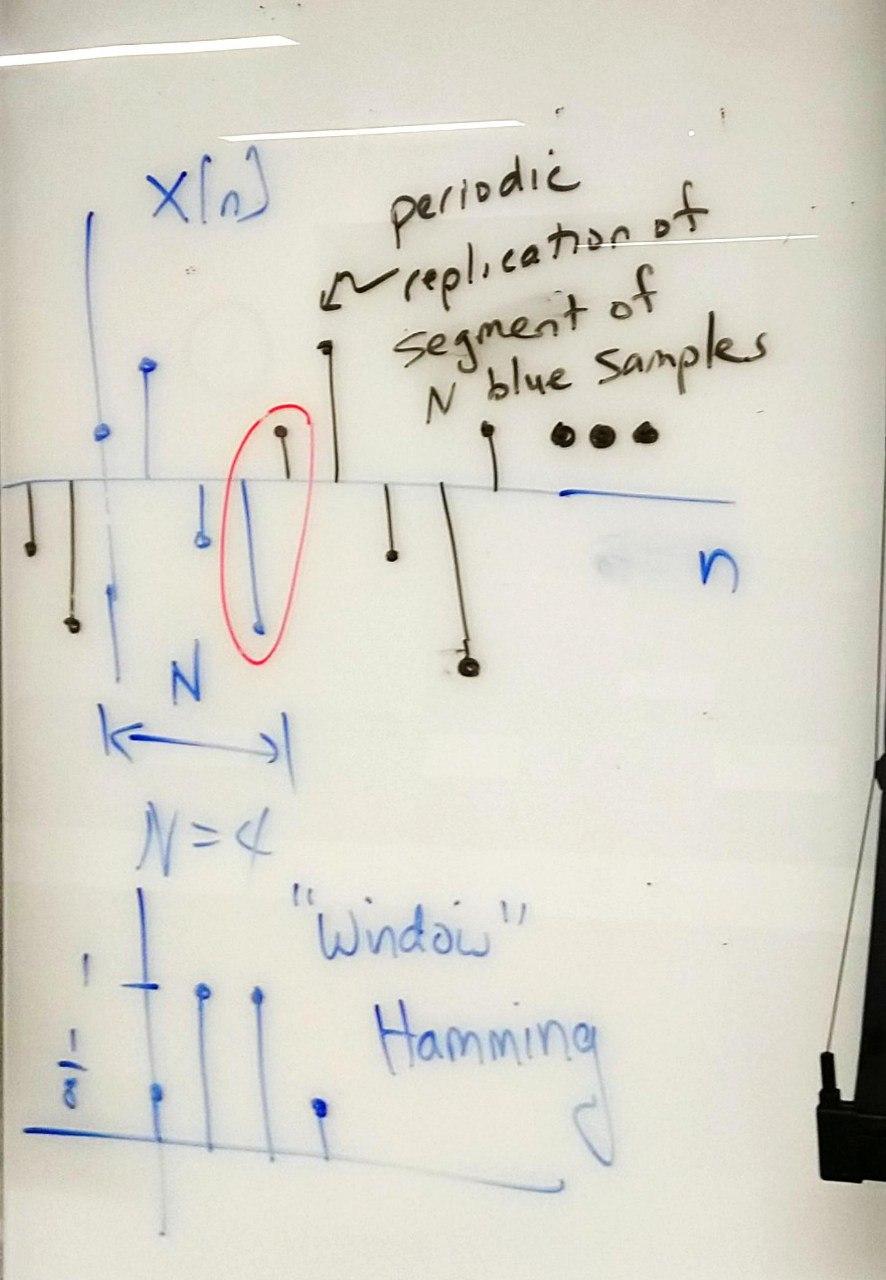 x[n]
periodic
replication of
segment of
N blue samples
n
N
N = 4
"Window"
Hamming
1